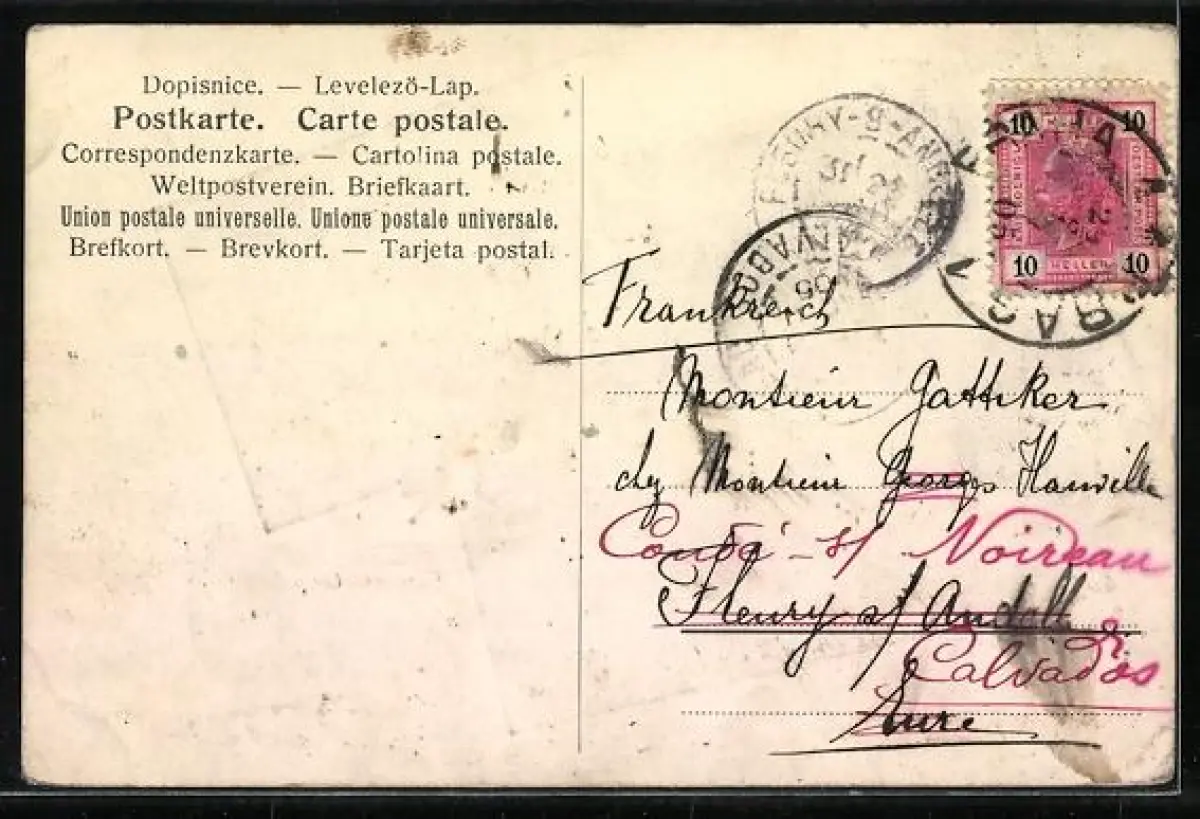 Dopisnice. — Levelező-Lap.
Postkarte. Carte postale.
Correspondenzkarte. — Cartolina postale.
Weltpostverein. Briefkaart.
Union postale universelle. Unione postale universale.
Brefkort. — Brevkort. — Tarjeta postal.
FLEURY-S-ANDELLE
10 10
10 HELLER 10
PRAG
Frankreich
Monsieur Gattiker
chez Monsieur Georges Hauville
Condé s/ Noireau
Fleury s/ Andelle
Calvados
Eure